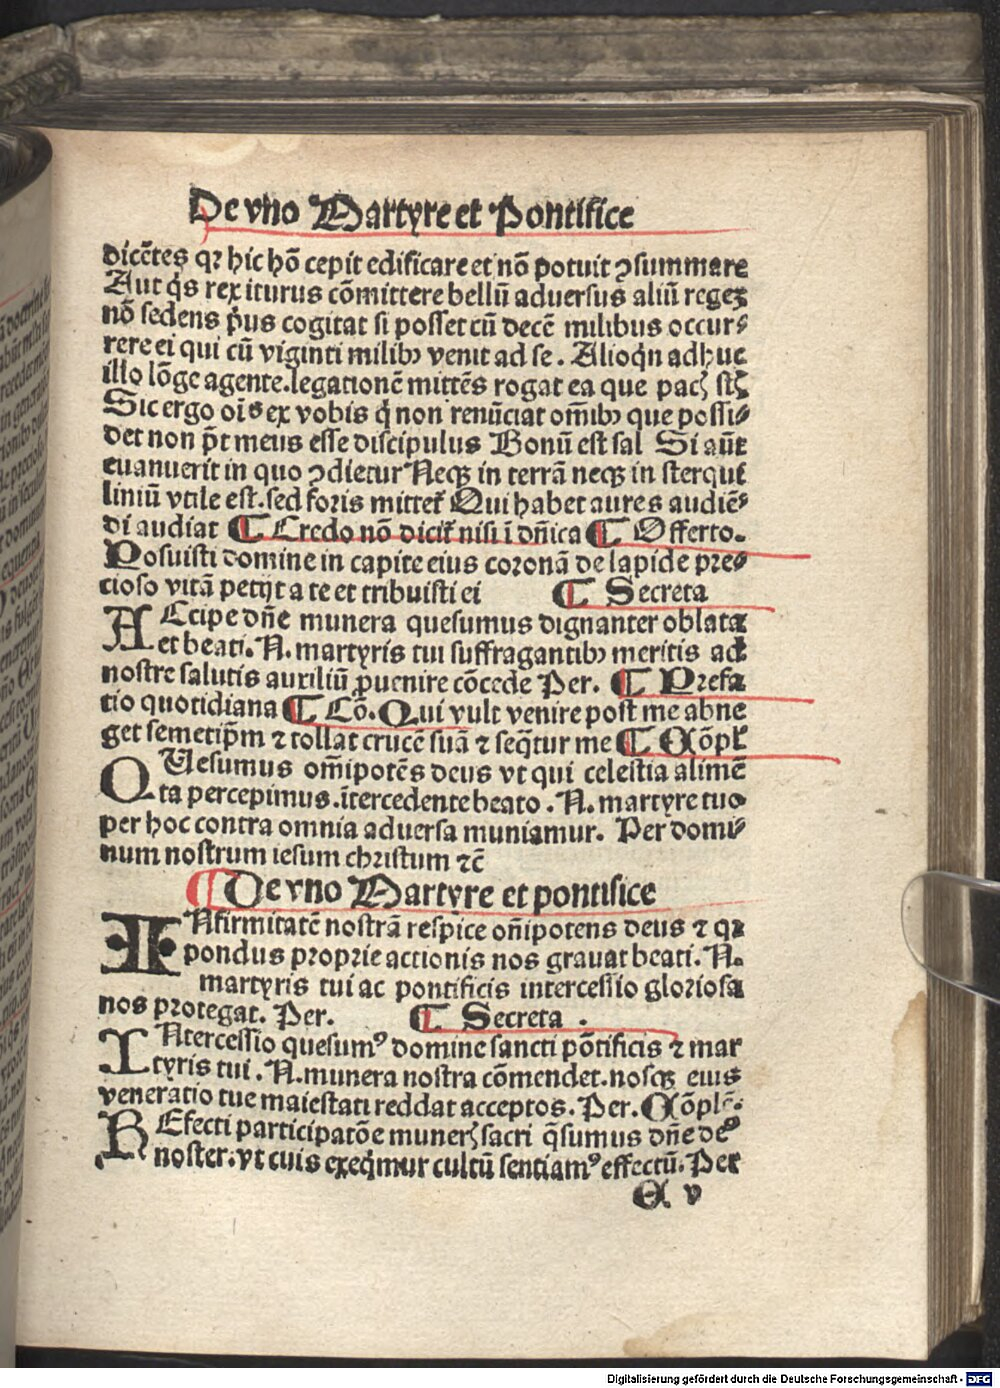 De vno Martyre et Pontifice
dicētes qꝛ hic hō cepit edificare et nō potuit ꝯsummare
Aut q̄s rex iturus cōmittere bellū aduersus aliū regeꝫ
nō sedens p̄us cogitat si posset cū decē milibus occur⸗
rere ei qui cū viginti milibꝰ venit ad se. Alioqn̄ adhuc
illo lōge agente.legationē mittēs rogat ea que pacꝭ st̄
Sic ergo oīs ex vobis q̄ non renūciat om̄ibꝰ que possi⸗
det non p̄t meus esse discipulus Bonū est sal Si aūt
euanuerit in quo ꝯdietur Neqꝫ in terrā neqꝫ in sterqui
liniū vtile est.sed foris mittet̄ Qui habet aures audiē⸗
di audiat ¶ Credo nō dicit̄ nisi ī dn̄ica ¶ Offerto.
Posuisti domine in capite eius coronā de lapide pre⸗
cioso vitā petijt a te et tribuisti ei ¶ Secreta
ACcipe dn̄e munera quesumus dignanter oblata
et beati. N. martyris tui suffragantibꝰ meritis ad
nostre salutis auxiliū ꝓuenire cōcede Per. ¶ Prefa
tio quotidiana ¶ Cō. Qui vult venire post me abne
get semetip̄m ⁊ tollat crucē suā ⁊ seq̄tur me ¶ Cōpl̄
QUesumus om̄ipotēs deus vt qui celestia alimē
ta percepimus.ītercedente beato. N. martyre tuo
per hoc contra omnia aduersa muniamur. Per domi⸗
num nostrum iesum christum ⁊c̄
¶ De vno Martyre et pontifice
INfirmitatē nostrā respice om̄ipotens deus ⁊ qꝛ
pondus proprie actionis nos grauat beati. N.
martyris tui ac pontificis intercessio gloriosa
nos protegat. Per. ¶ Secreta.
INtercessio quesumꝰ domine sancti pōtificis ⁊ mar
tyris tui. N. munera nostra cōmendet.nosqꝫ eius
veneratio tue maiestati reddat acceptos. Per. Cōplē.
REfecti participatōe munerꝭ sacri q̄sumus dn̄e deꝰ
noster.vt cuis exeq̄mur cultū sentiamꝰ effectū. Per
v